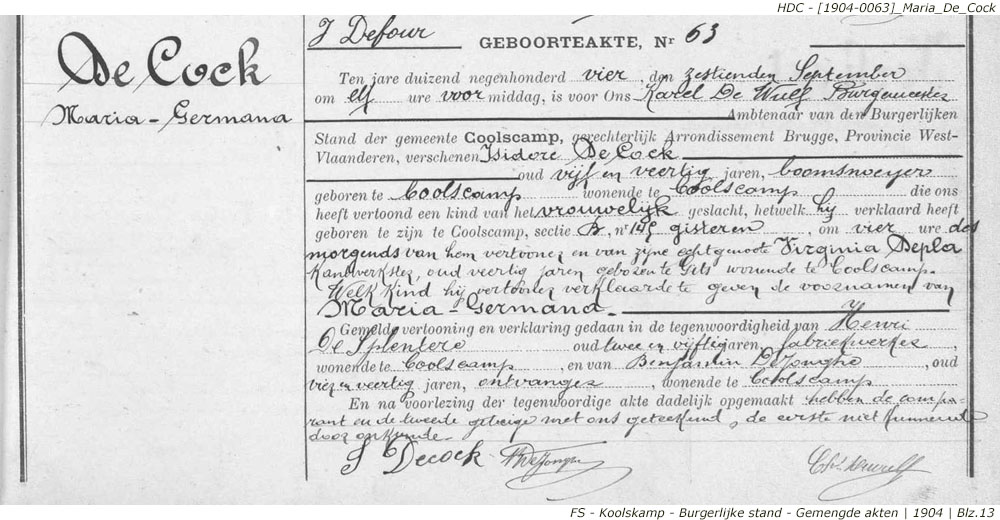 HDC - [1904-0063]_Maria_De_Cock
De Cock
Maria - Germana
J Defour
GEBOORTEAKTE, Nr 63
Ten jare duizend negenhonderd vier, den zestienden September
om elf ure voor middag, is voor Ons Karel De Wulf Burgemeester
Ambtenaar van den Burgerlijken
Stand der gemeente Coolscamp, gerechterlijk Arrondissement Brugge, Provincie West-
Vlaanderen, verschenen Isidore De Cock
oud vijf en veertig jaren, boomsnoeyer
geboren te Coolscamp wonende te Coolscamp die ons
heeft vertoond een kind van het vrouwelijk geslacht, hetwelk hij verklaard heeft
geboren te zijn te Coolscamp, sectie B, nr 145 gisteren, om vier ure des
morgends van hem vertooner en van zijne echtgenoote Virginia Depla
Kantwerkster, oud veertig jaren geboren te Gits wonende te Coolscamp.
Welk kind hij vertooner verklaarde te geven de voornamen van
Maria - Germana.
Gemelde vertooning en verklaring gedaan in de tegenwoordigheid van Henri
De Splentere oud twee en vijftig jaren, fabriekwerker
wonende te Coolscamp, en van Benjamin DeJonghe, oud
vier en veertig jaren, ontvanger, wonende te Coolscamp
En na voorlezing der tegenwoordige akte dadelijk opgemaakt hebben de compa-
rant en de tweede getuige met ons geteekend, de eerste niet kunnende
door onkunde.
I Decock B DeJonghe
FS - Koolskamp - Burgerlijke stand - Gemengde akten | 1904 | Blz.13